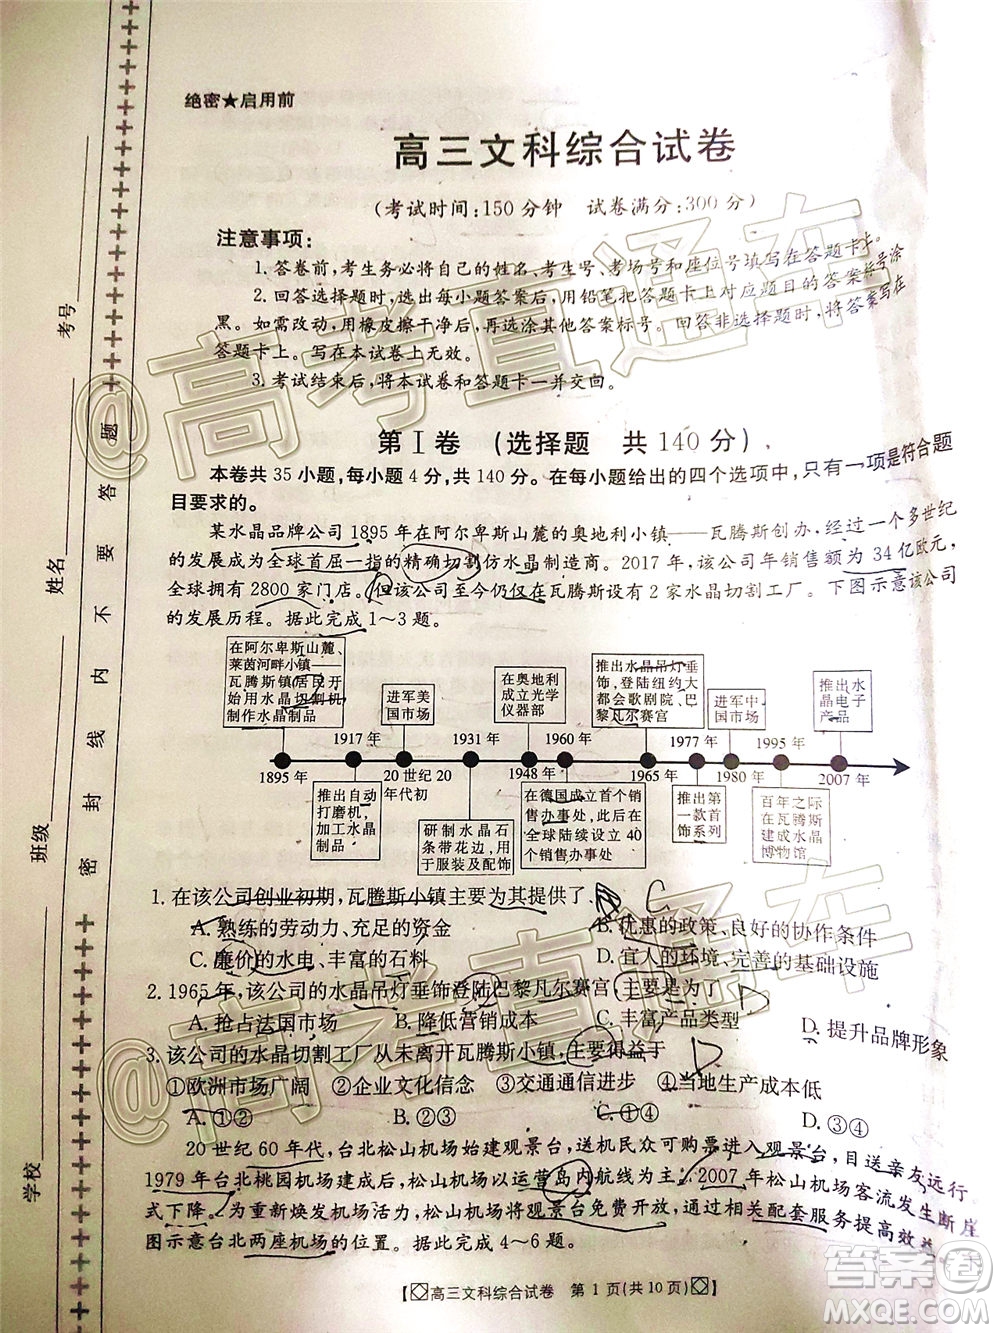 绝密★启用前
高三文科综合试卷
(考试时间:150分钟 试卷满分:300分)
注意事项:
1. 答卷前,考生务必将自己的姓名、考生号、考场号和座位号填写在答题卡上。
2. 回答选择题时,选出每小题答案后,用铅笔把答题卡上对应题目的答案标号涂
黑。如需改动,用橡皮擦干净后,再选涂其他答案标号。回答非选择题时,将答案写在
答题卡上。写在本试卷上无效。
3. 考试结束后,将本试卷和答题卡一并交回。
第Ⅰ卷 (选择题 共140分)
本卷共35小题,每小题4分,共140分。在每小题给出的四个选项中,只有一项是符合题
目要求的。
某水晶品牌公司1895年在阿尔卑斯山麓的奥地利小镇——瓦腾斯创办,经过一个多世纪
的发展成为全球首屈一指的精确切割仿水晶制造商。2017年,该公司年销售额为34亿欧元,
全球拥有2800家门店。但该公司至今仍仅在瓦腾斯设有2家水晶切割工厂。下图示意该公司
的发展历程。据此完成1~3题。
在阿尔卑斯山麓、
莱茵河畔小镇——
瓦腾斯镇(居民开
始用水晶切割机
制作水晶制品
进军美
国市场
在奥地利
成立光学
仪器部
推出水晶吊灯垂
饰,登陆纽约大
都会歌剧院、巴
黎凡尔赛宫
进军中
国市场
推出水
晶电子
产品
1917年 1931年 1960年 1977年 1995年
1895年 20世纪20
年代初 1948年 1965年 1980年 2007年
推出自动
打磨机,
加工水晶
制品
研制水晶石
条带花边,
用于服装及配饰
在德国成立首个销
售办事处,此后在
全球陆续设立40
个销售办事处
推出第
一款首
饰系列
百年之际
在瓦腾斯
建成水晶
博物馆
1. 在该公司创业初期,瓦腾斯小镇主要为其提供了 C
A. 熟练的劳动力、充足的资金 B. 优惠的政策、良好的协作条件
C. 廉价的水电、丰富的石料 D. 宜人的环境、完善的基础设施
2. 1965年,该公司的水晶吊灯垂饰登陆巴黎凡尔赛宫,主要是为了 D
A. 抢占法国市场 B. 降低营销成本 C. 丰富产品类型 D. 提升品牌形象
3. 该公司的水晶切割工厂从未离开瓦腾斯小镇,主要得益于
①欧洲市场广阔 ②企业文化信念 ③交通通信进步 ④当地生产成本低
A. ①② B. ②③ C. ①④ D. ③④
20世纪60年代,台北松山机场始建观景台,送机民众可购票进入观景台,目送亲友远行。
1979年台北桃园机场建成后,松山机场以运营岛内航线为主。2007年松山机场客流发生断崖
式下降。为重新焕发机场活力,松山机场将观景台免费开放,通过相关配套服务提高效益。下
图示意台北两座机场的位置。据此完成4~6题。
【高三文科综合试卷 第1页(共10页)】
学校
班级
姓名
考号
密封线内不要答题
@高考直通车
@高考直通车
答案圈
MXQE.COM